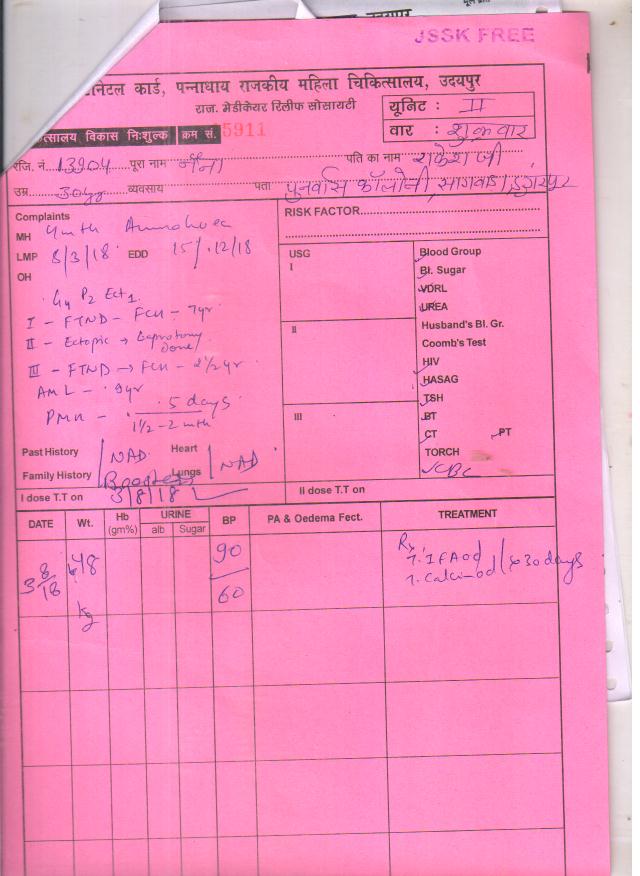 JSSK FREE
कार्ड, पन्नाधाय राजकीय महिला चिकित्सालय, उदयपुर
राज. मेडीकेयर रिलीफ सोसायटी
यूनिट : II
वार : शुक्रवार
विकास निःशुल्क क्रम सं. 5911
रजि. नं. 13904 पूरा नाम पति का नाम राकेश जी
उम्र 30yr व्यवसाय पता पुनर्वास कॉलोनी, सागवाडा, डुंगरपुर
Complaints
MH 4mth
LMP 8/3/18 EDD 15/12/18
OH
G4 P2 Ect1
I - FTND - FCH - 7yr
II - Ectopic → Laprotomy Done
III - FTND → FCH - 2 1/2 yr
AML - 9yr
PMH - 5 days
1 1/2 - 2 mth
RISK FACTOR
USG
I
II
III
Blood Group
Bl. Sugar
VDRL
UREA
Husband's Bl. Gr.
Coomb's Test
HIV
HASAG
TSH
BT
CT PT
TORCH
CBC
Past History NAD Heart
Family History Lungs NAD
Booster
I dose T.T on 3/8/18 II dose T.T on
DATE Wt. Hb (gm%) URINE alb Sugar BP PA & Oedema Fect. TREATMENT
3/8/18 48 kg 90/60
Rx
T. IFA od
T. Calci - od x 30 days